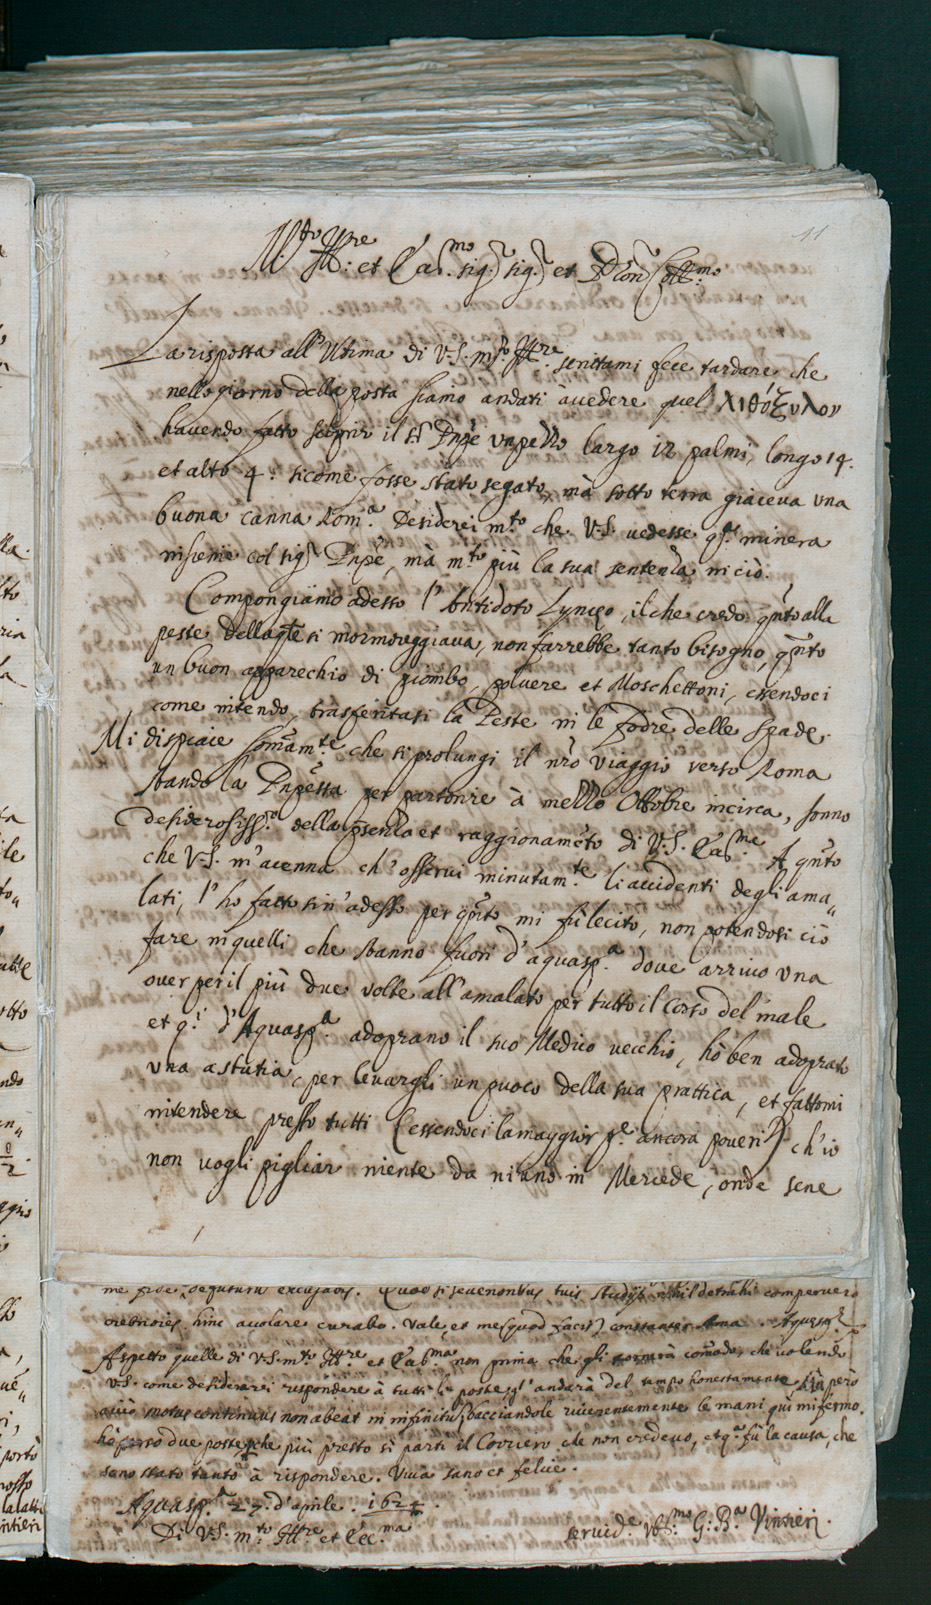 11
M.to Ill.re et Ecc.mo sig.r sig.r et Pron Coll.mo
La risposta all'Ultima di V.S. m.to Ill.re scrittami fece tardare che
nello giorno della posta siamo andati à vedere quel λιθόξυλον
havendo fatto scoprir il S.r Prīpe un pezzo largo 12 palmi, longo 14.
et alto 4. sicome fosse stato segato, mà sotto terra giaceva una
buona canna Rom.a Desiderei m.to che V.S. vedesse q.sta minera
insieme col sig.r Prīpe, mà m.to più la sua sentenza in ciò.
Compongiamo adesso l'Antidoto Lynceo, il che credo q̄nto alla
peste della q̄le si mormoreggiava, non farrebbe tanto bisogno, q̄nto
un buon apparechio di piombo, polvere et Moschettoni, essendoci
come intendo, trasferitasi la Peste in le fodre delle spade.
Mi dispiace som̄am.te che si prolungi il n̄ro viaggio verso Roma
stando la Prīpessa per partorire à mezzo Ottobre incirca, sonno
desiderosiss.o della p̄senza et raggionamēto di V.S. Ecc.ma A q̄nto
che V.S. m'acenna ch'osservi minutam.te li accidenti degli ama„
lati, l'ho fatto sin'adesso per q̄nto mi fù lecito, non potendosi ciò
fare in quelli che stanno fuori d'aquasp.a dove arrivo una
over per il più due volte all'amalato per tutto il corso del male
et q.i d'Aquasp.a adoprano il suo Medico vecchio, hò ben adoprato
una astutia, per levargli un puoco della sua prattica, et fattomi
intendere presso tutti (essendoci la maggior p.e ancora poveri) ch'io
non vogli pigliar niente da niuno in Mercede, onde sene
me fide, defuturū excusavis. Quod si sevenontbus tuis studijs nihil detrahi comperuero
crebriores hinc avolare curabo. Vale, et me (quod facis) constanter Ama. Aquasp.
Aspetto quelle di V.S. m.to Ill.re et Ecc.ma non prima che gli tornerà com̄odo, che volendo
V.S. come desiderarei rispondere à tutte le poste gl'andarà del tempo honestamente, sia però
acciò motus continuus non abeat in infinitū, bacciandole riverentemente le mani qui mi fermo.
hò perso due poste p̄che più presto si partì il Corriero che non credevo, et q.a fù la causa, che
sono stato tanto à rispondere. Viva sano et felice.
Aquasp.a 27. d'aprile. 1624.
Di V.S. m.to Ill.re et Ecc.ma
servid.e Obl.mo G: B.a Vintieri.